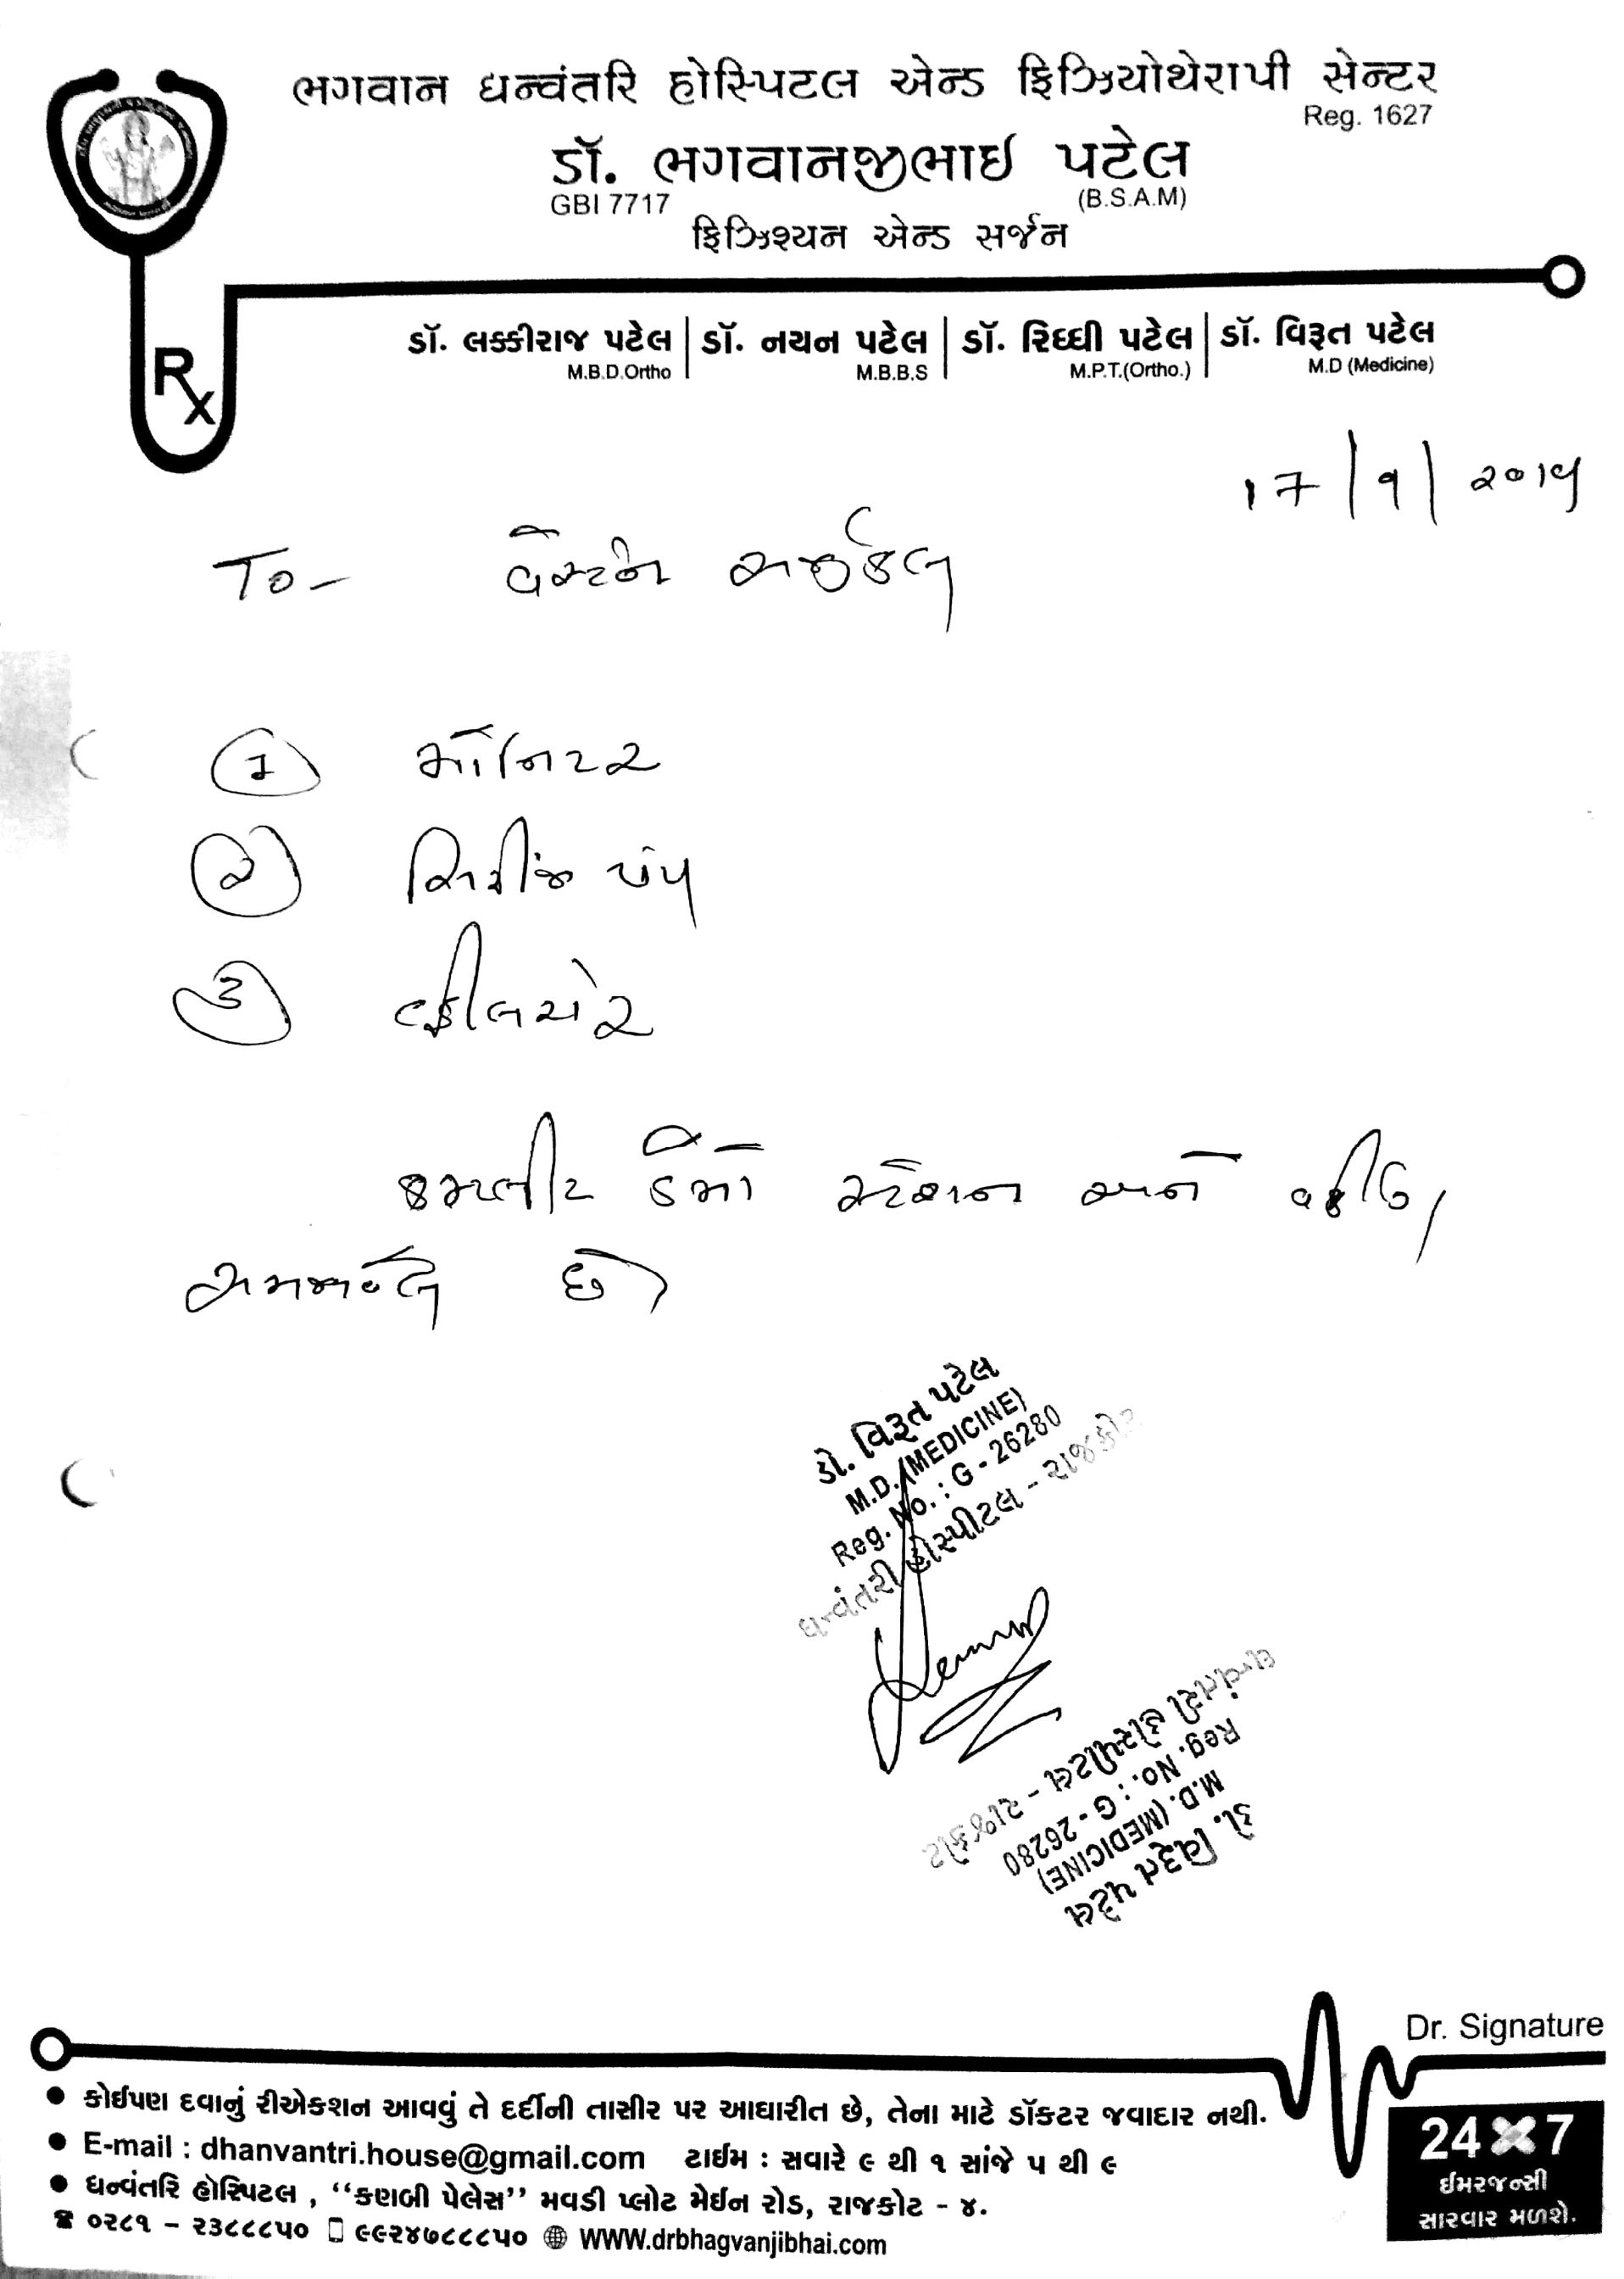 ભગવાન ધન્વંતરિ હોસ્પિટલ એન્ડ ફિઝિયોથેરાપી સેન્ટર
Reg. 1627
ડૉ. ભગવાનજીભાઇ પટેલ
GBI 7717 (B.S.A.M)
ફિઝિશ્યન એન્ડ સર્જન
Rx
ડૉ. લક્કીરાજ પટેલ ડૉ. નયન પટેલ ડૉ. રિધ્ધી પટેલ ડૉ. વિરૂત પટેલ
M.B.D.Ortho M.B.B.S M.P.T.(Ortho.) M.D (Medicine)
To - વેસ્ટર્ન સર્જીકલ
૧ મોનિટર
૨ સિરીંજ પંપ
૩ વ્હીલચેર
કમ્પલીટ ડેમો સ્ટેશન અને
સમજાવેલ છે
ડો. વિરૂત પટેલ
M.D. (MEDICINE)
Reg. No. : G - 26280
ધન્વંતરી હોસ્પીટલ - રાજકોટ
ધન્વંતરી હોસ્પીટલ - રાજકોટ
Reg. No. : G - 26280
M.D. (MEDICINE)
ડો. વિરૂત પટેલ
Dr. Signature
• કોઈપણ દવાનું રીએકશન આવવું તે દર્દીની તાસીર પર આધારીત છે, તેના માટે ડૉક્ટર જવાદાર નથી.
• E-mail : dhanvantri.house@gmail.com ટાઈમ : સવારે ૯ થી ૧ સાંજે ૫ થી ૯
• ધન્વંતરિ હોસ્પિટલ , ‘‘કણબી પેલેસ’’ મવડી પ્લોટ મેઈન રોડ, રાજકોટ - ૪.
૦૨૮૧ – ૨૩૮૮૮૫૦ ૯૯૨૪૭૮૮૮૫૦ WWW.drbhagvanjibhai.com
24 X 7
ઈમરજન્સી
સારવાર મળશે.